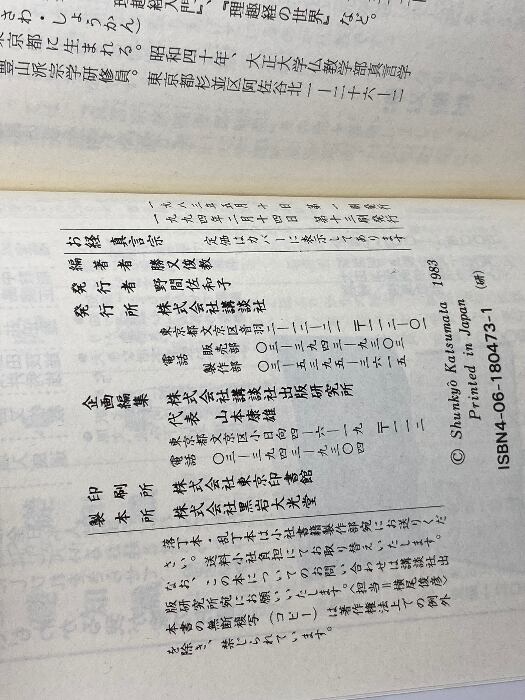 理趣経入門』、『理趣経の世界』など。
さわ・しょうかん)
東京都に生まれる。昭和四十年、大正大学仏教学部真言学
豊山派宗学研修員。東京都杉並区阿佐谷北一ー二十六ー二
一九八三年五月十日 第一刷発行
一九九四年二月十四日 第十三刷発行
お経 真言宗
定価はカバーに表示してあります
編著者 勝又俊教
発行者 野間佐和子
発行所 株式会社講談社
東京都文京区音羽二ー一二ー二一 〒一一二ー〇一
電話 販売部 〇三ー五三九五ー三六一五
製作部
企画編集 株式会社講談社出版研究所
代表 山本康雄
東京都文京区小日向四ー六ー一九 〒一一二
電話 〇三ー三九四三ー九三〇四
印刷所 株式会社東京印書館
製本所 株式会社黒岩大光堂
落丁本・乱丁本は小社書籍製作部宛にお送りくだ
さい。送料小社負担にてお取り替えいたします。
なお、この本についてのお問い合わせは講談社出
版研究所宛にお願いいたします。〈担当=横尾俊彦〉
本書の無断複写(コピー)は著作権法上での例外
を除き、禁じられています。
© Shunkyô Katsumata 1983
Printed in Japan
(研)
ISBN4-06-180473-1